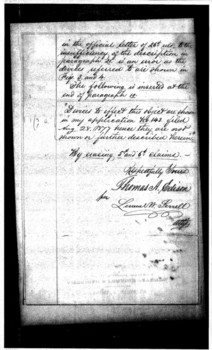 in the official letter of 21st ult, & the
insufficiency of the description in
paragraph 11 is an error as the
devices referred to are shown in
Figs 3 and 4.
The following is inserted at the
end of paragraph 11
Devices to effect this object are shown
in my application No 143 filed
Aug 28, 1877 hence they are not
shown or further described herein.
By erasing 5th and 6th claims. —
Respectfully Yours
Thomas A. Edison
for
Lemuel W. Serrell
atty